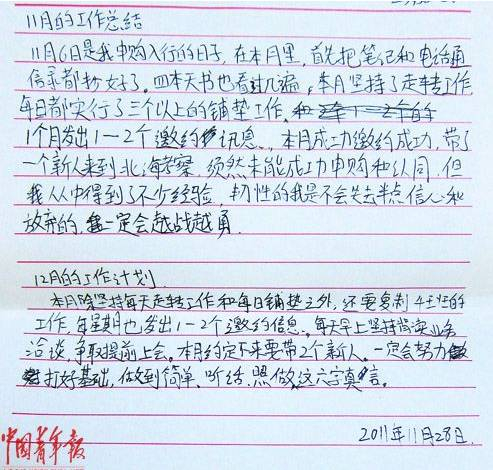 11月的工作总结
11月6日是我申购入行的日子,在本月里,首先把笔记和电话通
信录都抄好了。四本天书也看过几遍,本月坚持了走转工作
每日都实行了三个以上的铺垫工作。
1个月发出1一2个邀约讯息。本月成功邀约成功,带了
一个新人来到北海考察,须然未能成功申购和认同,但
我从中得到了不少经验,韧性的我是不会失去半点信心和
放弃的,我一定会越战越勇
12月的工作计划
本月除坚持每天走转工作和每日铺垫之外,还要复制4主性的
工作,每星期也发出1一2个邀约信息。每天早上坚持
洽谈,争取提前上会。本月约定下来要带2个新人。一定会努力做
打好基础,做到简单、听话、照做这六字真言。
2011年11月28日
中国青年报